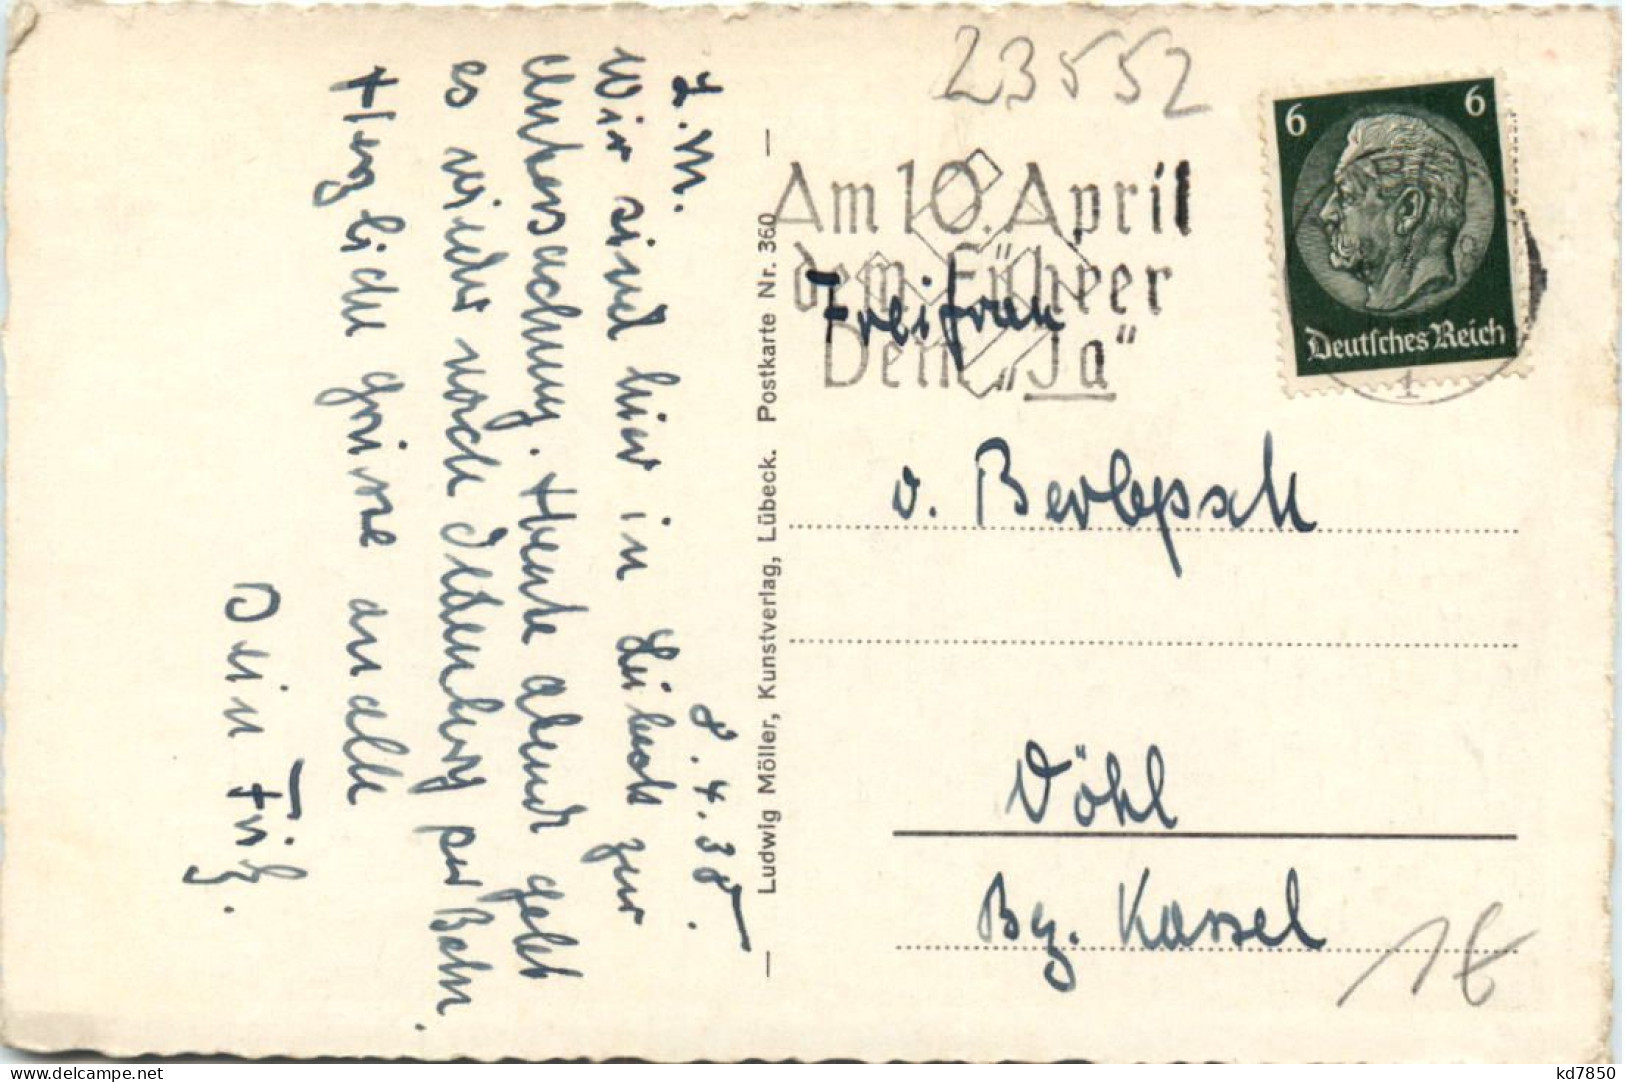 L. M.
8.4.38.
Wir sind hier in Lübeck zur
Untersuchung. Heute abend geht
es wieder nach Oldenburg per Bahn.
Herzliche Grüsse an alle
Dein Fritz.
Ludwig Möller, Kunstverlag, Lübeck. Postkarte Nr. 360
23552
Am 10. April
dem Führer
Dein „Ja“
6 6
Deutsches Reich
1
Freifrau
v. Berlepsch
Vöhl
Bz. Kassel
1€
delcampe.net
kd7850